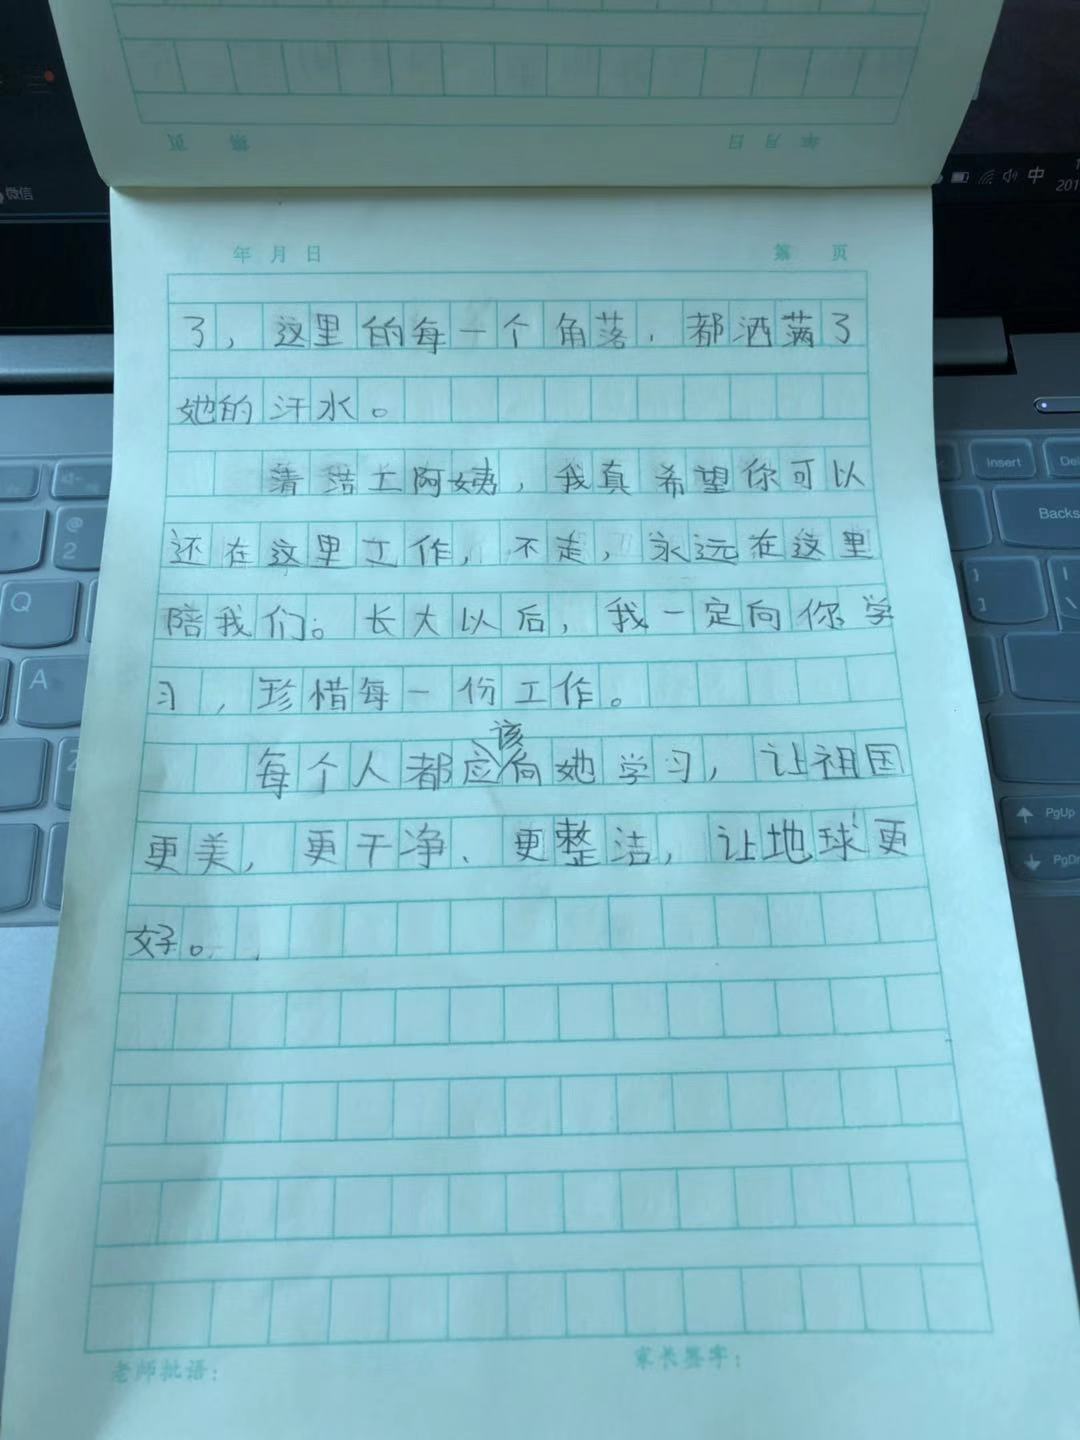 页 第 日 月 年
微信
中
201
年 月 日 第 页
了，这里的每一个角落，都洒满了
她的汗水。
清洁工阿姨，我真希望你可以
还在这里工作，不走，永远在这里
陪我们。长大以后，我一定向你学
习，珍惜每一份工作。
该
每个人都应向她学习，让祖国
更美，更干净、更整洁，让地球更
好。
老师批语： 家长签字：
Insert
Del
@
2
Backs
Q
}
]
A
PgUp
PgDn